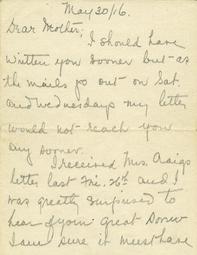 May 30/16.
Dear Mother,
I should have
written you sooner but as
the mails go out on Sat.
and Wednesdays my letter
would not reach you
any sooner.
I received Mrs. Craigs
letter last Fri. 26th and I
was greatly surprised to
hear of your great Sorrow
I am sure it must have